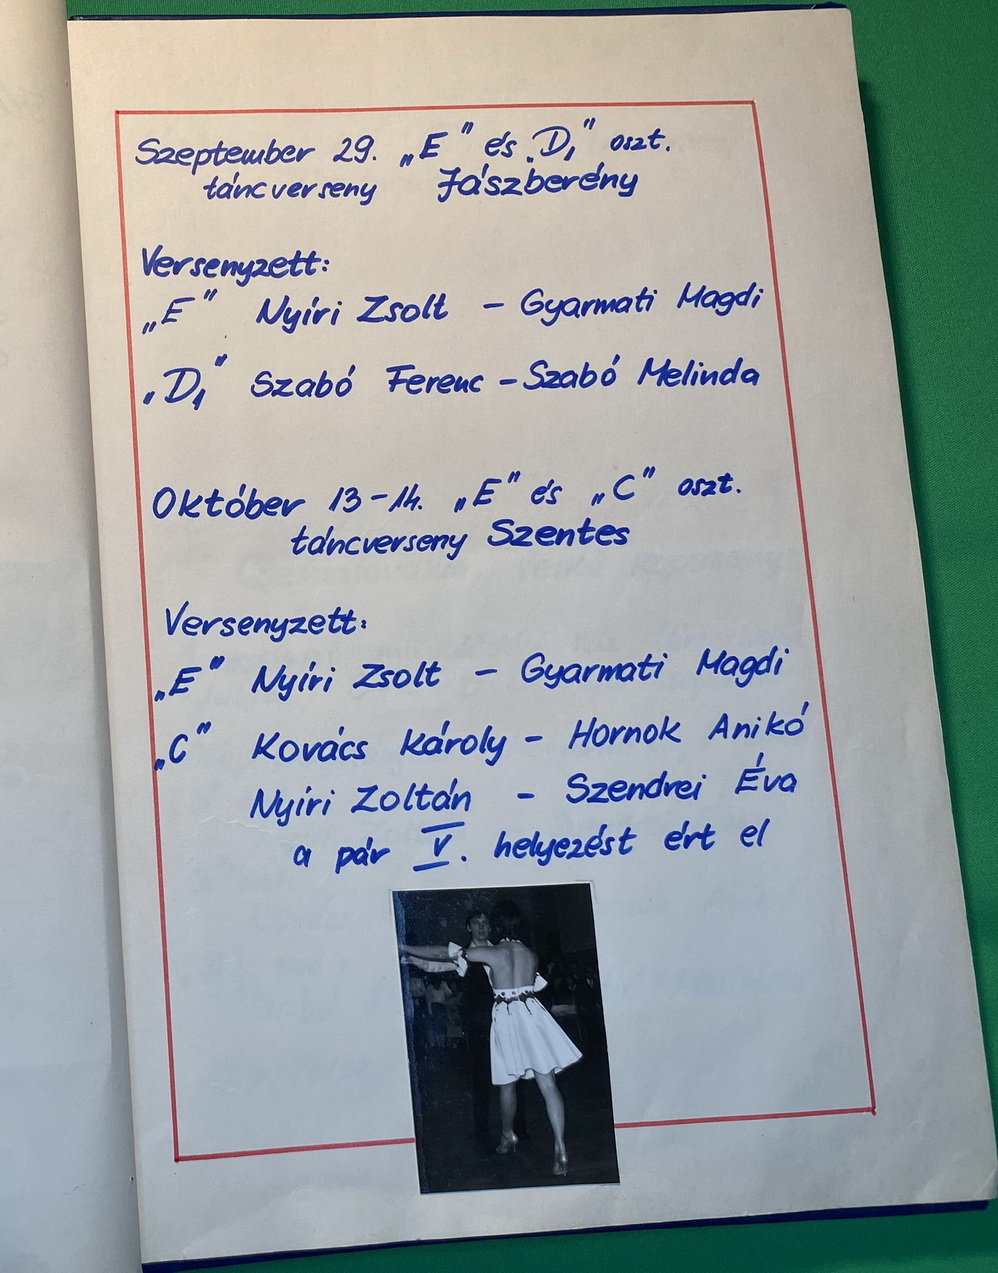 Szeptember 29. „E” és „D₁” oszt.
táncverseny Jászberény
Versenyzett:
„E” Nyíri Zsolt – Gyarmati Magdi
„D₁” Szabó Ferenc – Szabó Melinda
Október 13-14. „E” és „C” oszt.
táncverseny Szentes
Versenyzett:
„E” Nyíri Zsolt – Gyarmati Magdi
„C” Kovács Károly – Hornok Anikó
Nyíri Zoltán – Szendrei Éva
a pár V. helyezést ért el